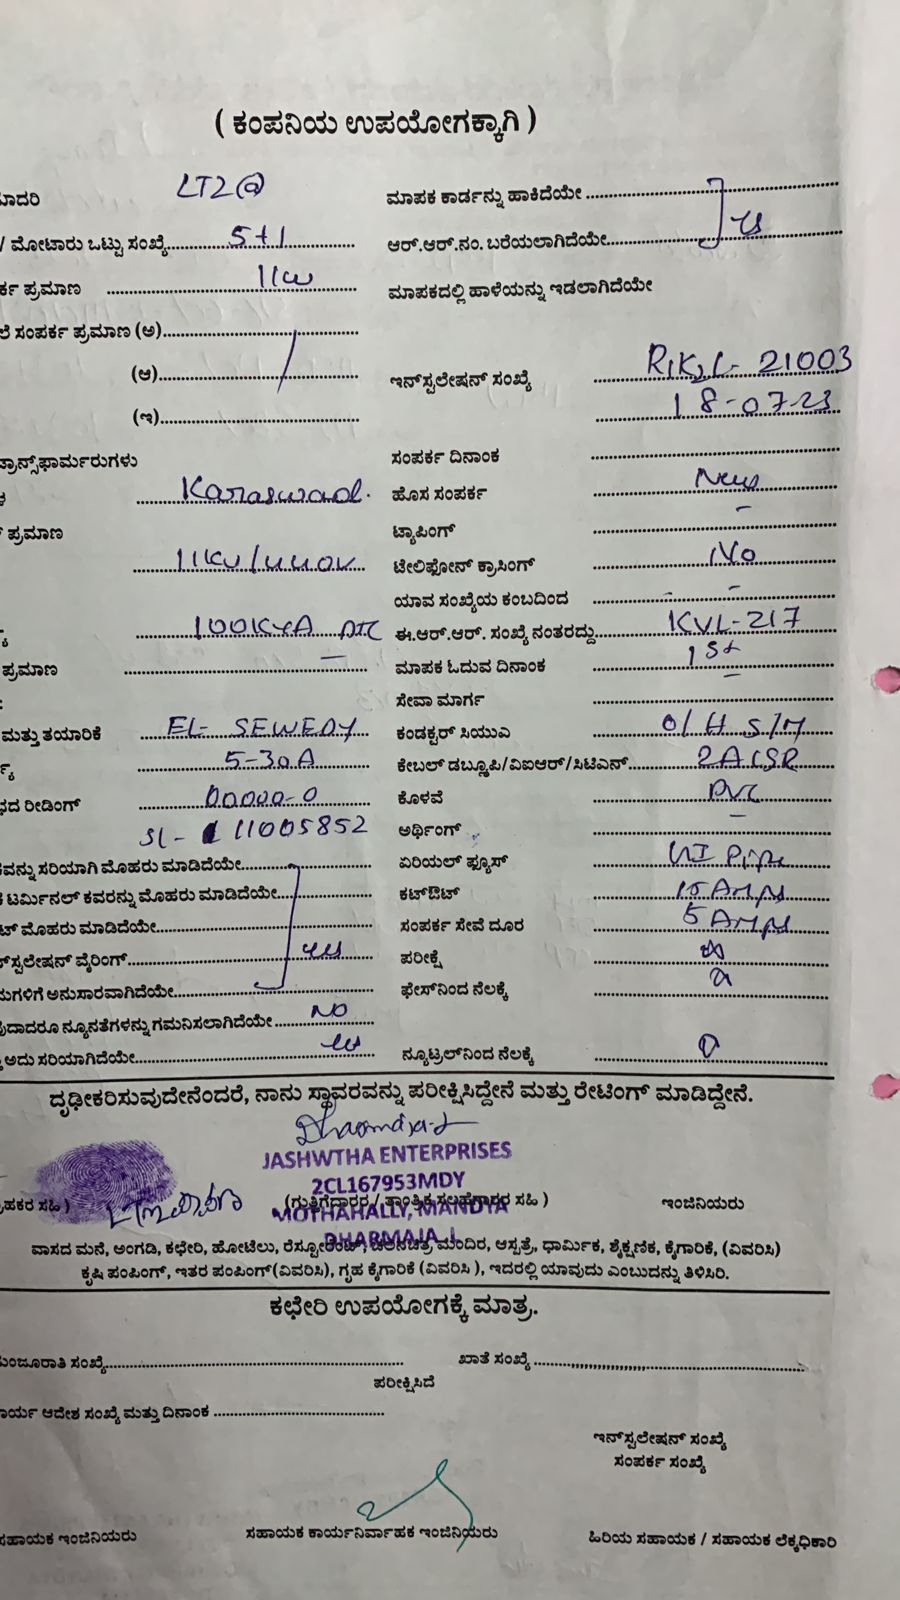 ( ಕಂಪನಿಯ ಉಪಯೋಗಕ್ಕಾಗಿ )
ಮಾದರಿ LT2@ ಮಾಪಕ ಕಾರ್ಡನ್ನು ಹಾಕಿದೆಯೇ
/ ಮೋಟಾರು ಒಟ್ಟು ಸಂಖ್ಯೆ 5+1 ಆರ್.ಆರ್.ನಂ. ಬರೆಯಲಾಗಿದೆಯೇ yes
ಪ್ರಮಾಣ 11w ಮಾಪಕದಲ್ಲಿ ಹಾಳೆಯನ್ನು ಇಡಲಾಗಿದೆಯೇ
ಸಂಪರ್ಕ ಪ್ರಮಾಣ (ಅ)
(ಆ) ಇನ್‌ಸ್ಟಲೇಷನ್ ಸಂಖ್ಯೆ 21003
(ಇ) 18-07-23
ಟ್ರಾನ್ಸ್‌ಫಾರ್ಮರುಗಳು ಸಂಪರ್ಕ ದಿನಾಂಕ
Karaswadi. ಹೊಸ ಸಂಪರ್ಕ New
ಪ್ರಮಾಣ ಟ್ಯಾಪಿಂಗ್ -
11KV/440V ಟೆಲಿಫೋನ್ ಕ್ರಾಸಿಂಗ್ No
ಯಾವ ಸಂಖ್ಯೆಯ ಕಂಬದಿಂದ - -
100KVA ಈ.ಆರ್.ಆರ್. ಸಂಖ್ಯೆ ನಂತರದ್ದು KVL-217
ಪ್ರಮಾಣ - ಮಾಪಕ ಓದುವ ದಿನಾಂಕ 1st
ಸೇವಾ ಮಾರ್ಗ -
ಮತ್ತು ತಯಾರಿಕೆ EL- SEWEDY ಕಂಡಕ್ಟರ್ ಸಿಯುಎ O/H S/M
5-30A ಕೇಬಲ್ ಡಬ್ಲೂಪಿ/ವಿಐಆರ್/ಸಿಟಿಎಸ್ 2ACSR
ರೀಡಿಂಗ್ 00000-0 ಕೊಳವೆ PVC
SL- 11005852 ಅರ್ಥಿಂಗ್ -
ಸರಿಯಾಗಿ ಮೊಹರು ಮಾಡಿದೆಯೇ ಏರಿಯಲ್ ಫ್ಯೂಸ್ GI Pipe
ಟರ್ಮಿನಲ್ ಕವರನ್ನು ಮೊಹರು ಮಾಡಿದೆಯೇ ಕಟ್‌ಔಟ್ 15 Amps
ಮೊಹರು ಮಾಡಿದೆಯೇ ಸಂಪರ್ಕ ಸೇವೆ ದೂರ 5 Amps
ಇನ್‌ಸ್ಟಲೇಷನ್ ವೈರಿಂಗ್ yes ಪರೀಕ್ಷೆ
ಅನುಸಾರವಾಗಿದೆಯೇ ಫೇಸ್‌ನಿಂದ ನೆಲಕ್ಕೆ
ನ್ಯೂನತೆಗಳನ್ನು ಗಮನಿಸಲಾಗಿದೆಯೇ NO
ಅದು ಸರಿಯಾಗಿದೆಯೇ yes ನ್ಯೂಟ್ರಲ್‌ನಿಂದ ನೆಲಕ್ಕೆ
ದೃಢೀಕರಿಸುವುದೇನೆಂದರೆ, ನಾನು ಸ್ಥಾವರವನ್ನು ಪರೀಕ್ಷಿಸಿದ್ದೇನೆ ಮತ್ತು ರೇಟಿಂಗ್ ಮಾಡಿದ್ದೇನೆ.
JASHWTHA ENTERPRISES
2CL167953MDY
ಸಹಿ ) (ಗುತ್ತಿಗೆದಾರರ / ತಾಂತ್ರಿಕ ಸಲಹೆಗಾರರ ಸಹಿ ) ಇಂಜಿನಿಯರು
MOTHAHALLY, MANDYA
DHARMAJA .L
ವಾಸದ ಮನೆ, ಅಂಗಡಿ, ಕಛೇರಿ, ಹೋಟೆಲು, ರೆಸ್ಟೋರೆಂಟ್, ಚಲನಚಿತ್ರ ಮಂದಿರ, ಆಸ್ಪತ್ರೆ, ಧಾರ್ಮಿಕ, ಶೈಕ್ಷಣಿಕ, ಕೈಗಾರಿಕೆ, (ವಿವರಿಸಿ)
ಕೃಷಿ ಪಂಪಿಂಗ್, ಇತರ ಪಂಪಿಂಗ್ (ವಿವರಿಸಿ), ಗೃಹ ಕೈಗಾರಿಕೆ (ವಿವರಿಸಿ ), ಇದರಲ್ಲಿ ಯಾವುದು ಎಂಬುದನ್ನು ತಿಳಿಸಿರಿ.
ಕಛೇರಿ ಉಪಯೋಗಕ್ಕೆ ಮಾತ್ರ.
ಮಂಜೂರಾತಿ ಸಂಖ್ಯೆ ಖಾತೆ ಸಂಖ್ಯೆ
ಪರೀಕ್ಷಿಸಿದೆ
ಕಾರ್ಯ ಆದೇಶ ಸಂಖ್ಯೆ ಮತ್ತು ದಿನಾಂಕ
ಇನ್‌ಸ್ಟಲೇಷನ್ ಸಂಖ್ಯೆ
ಸಂಪರ್ಕ ಸಂಖ್ಯೆ
ಸಹಾಯಕ ಇಂಜಿನಿಯರು ಸಹಾಯಕ ಕಾರ್ಯನಿರ್ವಾಹಕ ಇಂಜಿನಿಯರು ಹಿರಿಯ ಸಹಾಯಕ / ಸಹಾಯಕ ಲೆಕ್ಕಧಿಕಾರಿ